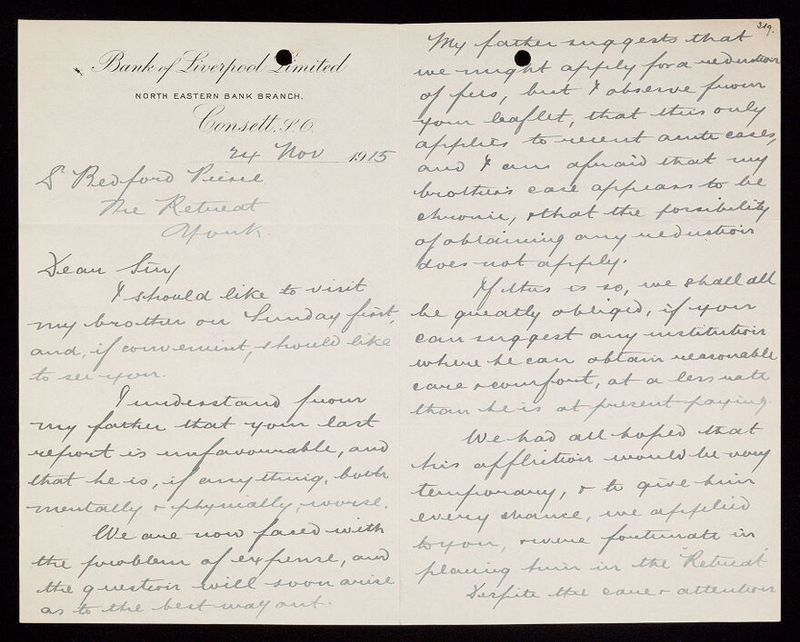 Bank of Liverpool Limited
NORTH EASTERN BANK BRANCH.
Consett, S.O.
24 Nov 1915
Dr Bedford Pierce
The Retreat
York.
Dear Sir,
I should like to visit
my brother on Sunday first,
and, if convenient, should like
to see you.
I understand from
my father that your last
report is unfavourable, and
that he is, if anything, both
mentally & physically, worse.
We are now faced with
the problem of expense, and
the question will soon arise
as to the best way out.
319.
My father suggests that
we might apply for a reduction
of fees, but I observe from
your leaflet, that this only
applies to recent acute cases,
and I am afraid that my
brother's case appears to be
chronic, & that the possibility
of obtaining any reduction
does not apply.
If this is so, we shall all
be greatly obliged, if you
can suggest any institution
where he can obtain reasonable
care & comfort, at a less rate
than he is at present paying.
We had all hoped that
his affliction would be very
temporary, & to give him
every chance, we applied
to you, & were fortunate in
placing him in the "Retreat"
Despite the care & attention